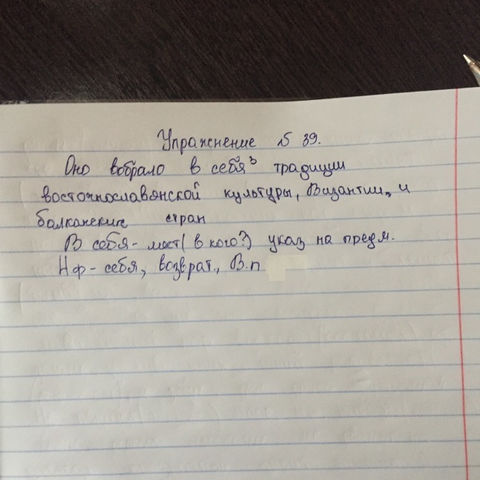 Упражнение № 39.
Оно вобрало в себя³ традиции
восточнославянской культуры, Византии, и
балканских стран
В себя - мест( в кого?) указ на предм.
Нф - себя, возврат., В.п